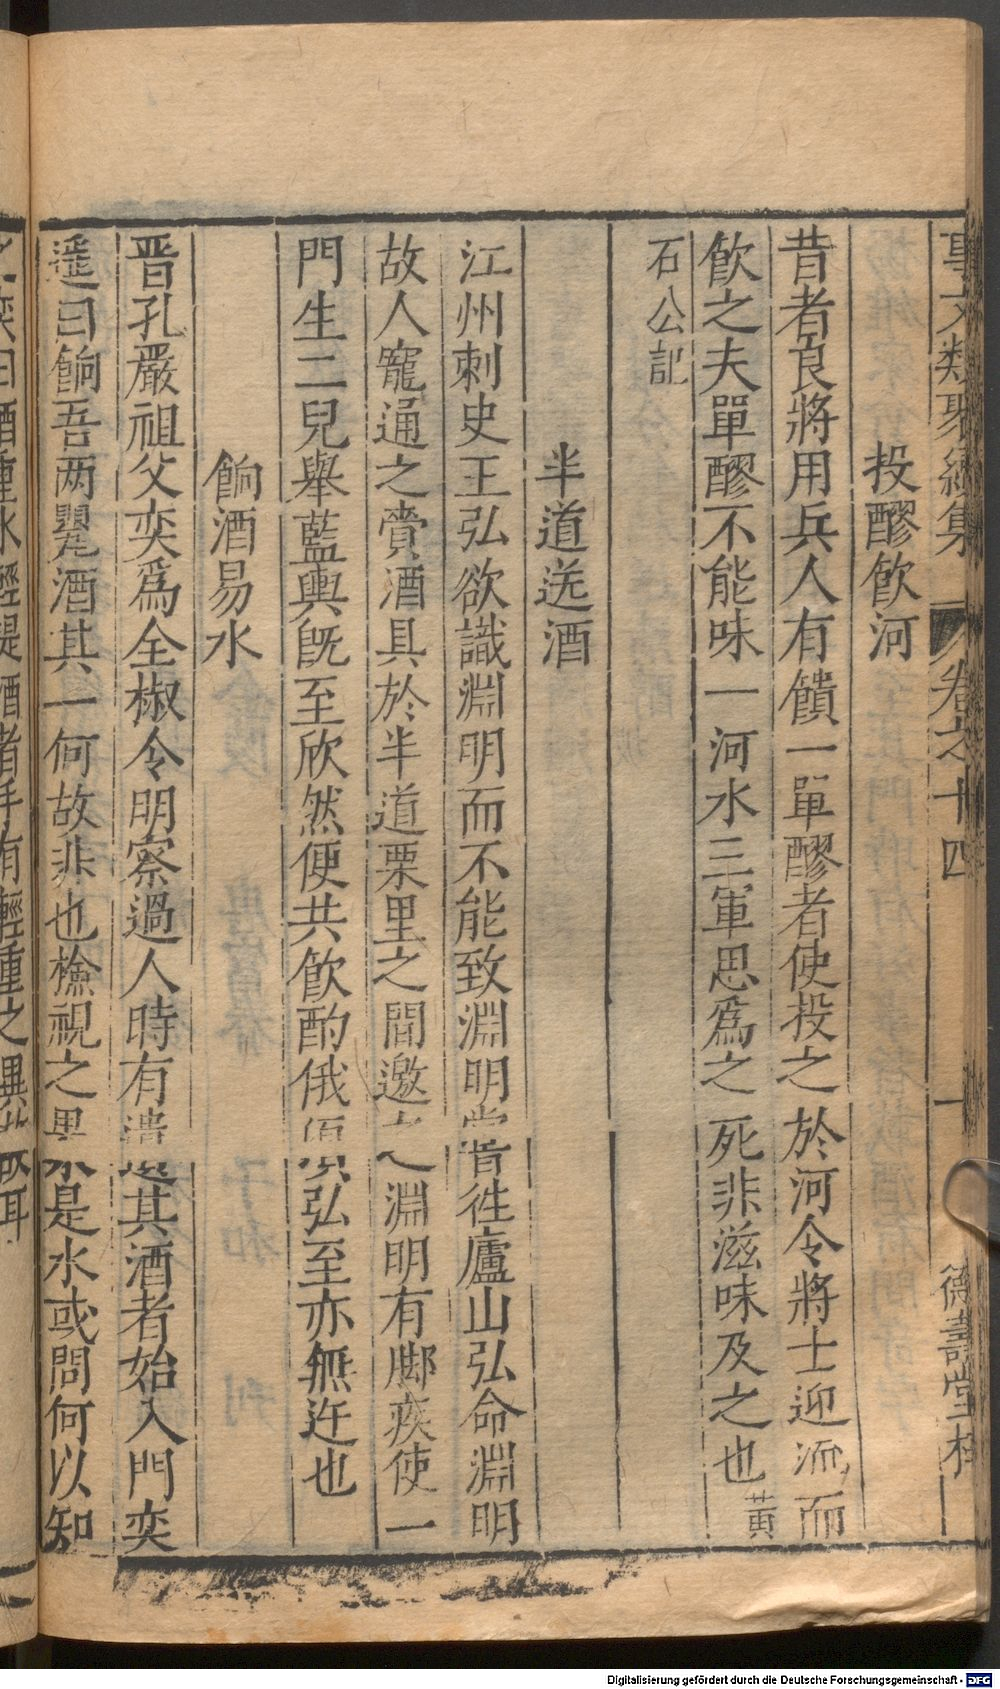 事文類聚續集 卷之十四 德壽堂梓
投醪飲河
昔者良將用兵人有饋一單醪者使投之於河令將士迎流而
飲之夫單醪不能味一河水三軍思爲之死非滋味及之也黃
石公記
半道送酒
江州刺史王弘欲識淵明而不能致淵明嘗徃廬山弘命淵明
故人寵通之賫酒具於半道栗里之間邀之淵明有脚疾使一
門生二兒舉藍輿旣至欣然便共飲酌俄頃弘至亦無迕也
餉酒易水
晋孔嚴祖父奕爲全椒令明察過人時有遺其酒者始入門奕
遥曰餉吾两甖酒其一何故非也檢視之果是水或問何以知
之奕曰酒重水輕提酒者手有輕重之異故耳
Digitalisierung gefördert durch die Deutsche Forschungsgemeinschaft - DFG